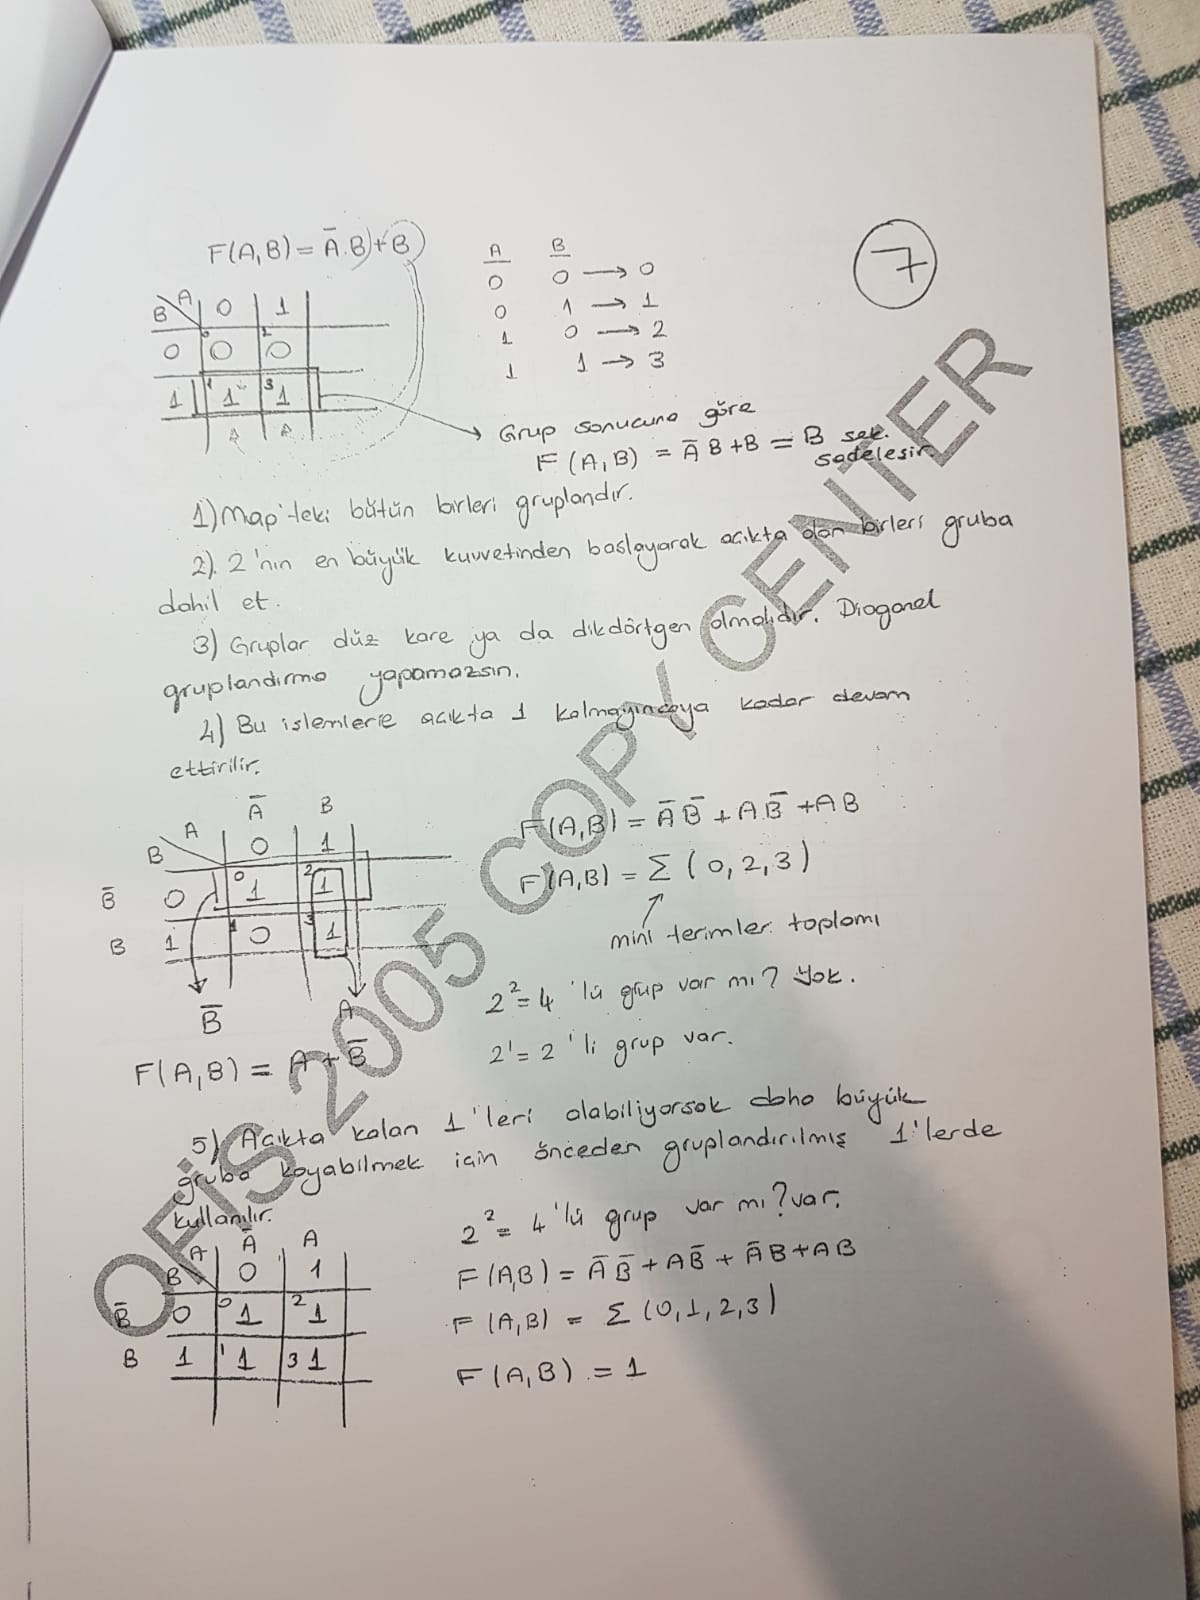 F(A,B) = Ā.B + B
7
A B
0 0 → 0
0 1 → 1
1 0 → 2
1 1 → 3
A 0 1
B
0 0 0 2 0
1 1 1 3 1
A A
Grup sonucuna göre
F(A,B) = Ā B + B = B şek.
sadeleşir.
1) Map'teki bütün birleri gruplandır.
2). 2'nin en büyük kuvvetinden başlayarak açıkta olan birleri gruba
dahil et.
3) Gruplar düz kare ya da dikdörtgen olmalıdır. Diagonel
gruplandırma yapamazsın.
4) Bu işlemlerle açıkta 1 kalmayıncaya kadar devam
ettirilir.
Ā B
A 0 1
B
B̄ 0 0 1 2 1
B 1 1 0 3 1
B̄ A
F(A,B) = A + B̄
F(A,B) = Ā B̄ + A B̄ + A B
F(A,B) = Σ (0,2,3)
mini terimler toplamı
2² = 4 'lü grup var mı? Yok.
2¹ = 2 'li grup var.
5) Açıkta kalan 1'leri alabiliyorsak daha büyük
gruba koyabilmek için önceden gruplandırılmış 1'lerde
kullanılır.
Ā A
A 0 1
B
B̄ 0 0 1 2 1
B 1 1 1 3 1
2² = 4 'lü grup var mı? var.
F(A,B) = Ā B̄ + A B̄ + Ā B + A B
F(A,B) = Σ (0,1,2,3)
F(A,B) = 1
OFİS 2005 COPY CENTER